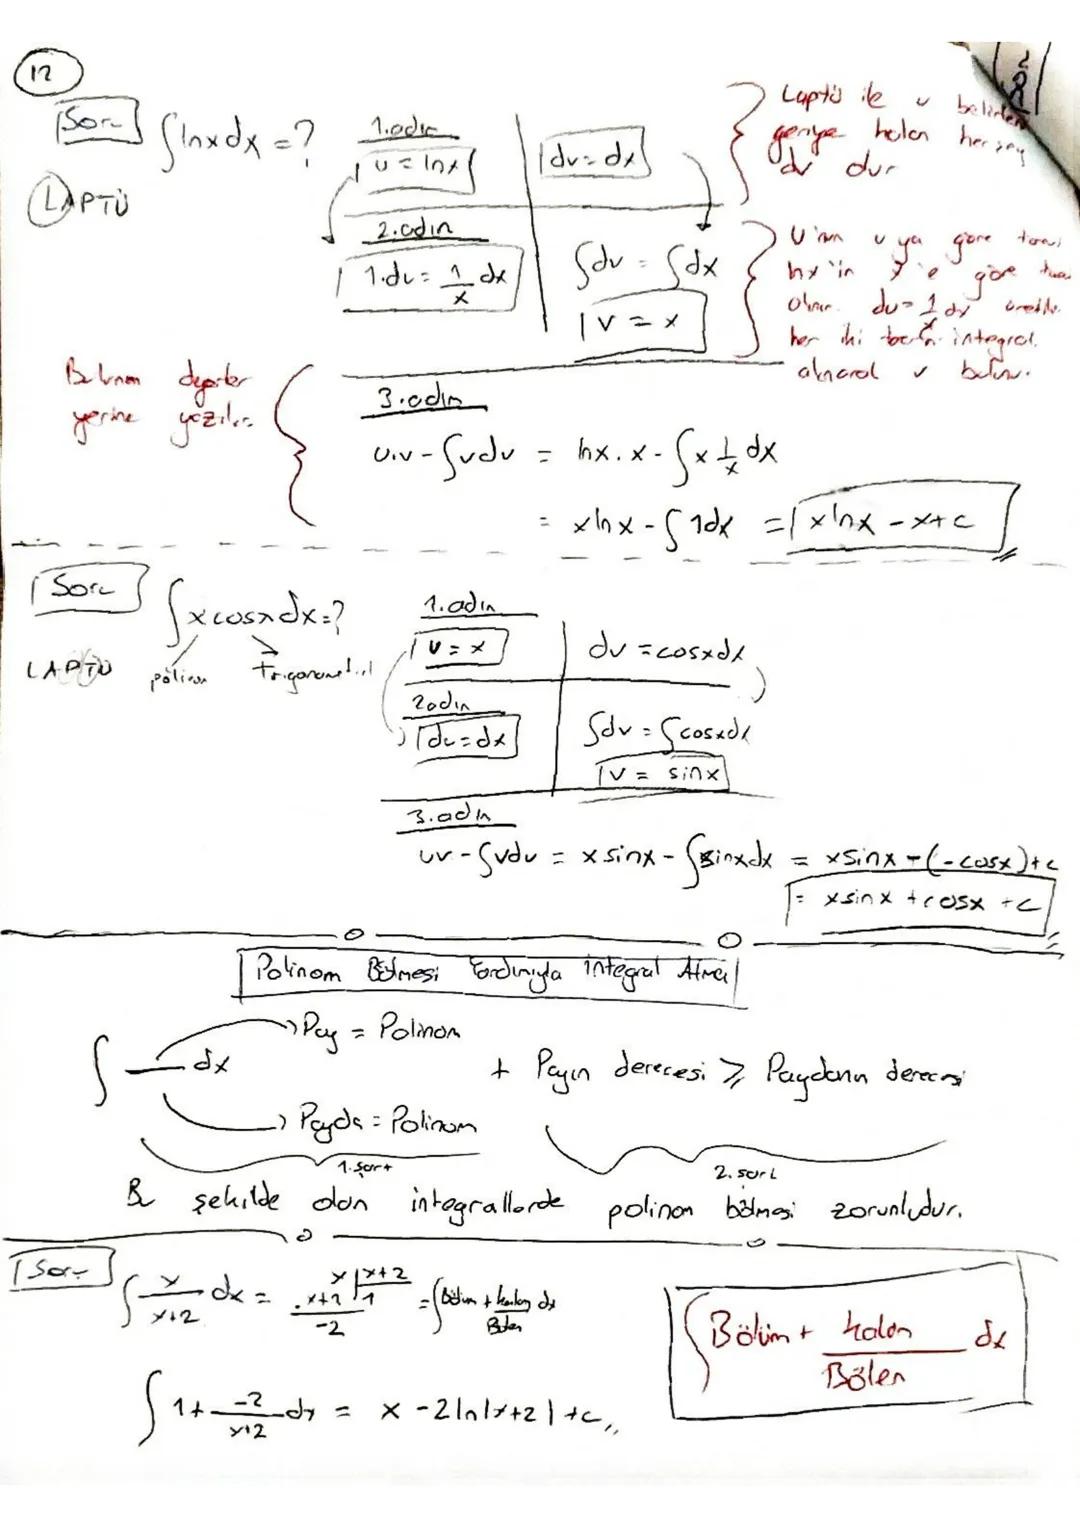 12
Soru ∫lnxdx=?
LAPTÜ
1.adım
u = lnx
dv = dx
2.adım
1.du = 1/x dx
∫dv = ∫dx
v = x
Laptü ile u belirlen
geriye kalan herşey
dv dur
U'nun u ya göre türevi
lnx'in x'e göre türevi
alınır. du = 1/x dx üretilir.
her iki tarafın integral
alınarak v bulunur.
Bulunan değerler
yerine yazılır.
3.adım
u.v - ∫vdu = lnx.x - ∫x 1/x dx
= xlnx - ∫1dx = xlnx - x+c
Soru ∫xcosxdx=?
LAPTÜ polinom Trigonometri
1.adım
u = x
dv = cosxdx
2.adım
du = dx
∫dv = ∫cosxdx
v = sinx
3.adım
uv - ∫vdu = xsinx - ∫sinxdx = xsinx - (-cosx)+c
= xsinx + cosx + c
Polinom Bölmesi Yardımıyla integral Alma
∫ — dx
Pay = Polinom
+ Payın derecesi ⩾ Paydanın derecesi
Payda = Polinom
1.şart
2.şart
Bu şekilde olan integrallerde polinom bölmesi zorunludur.
Soru ∫ x/x+2 dx =
x | x+2
x+2 | 1
-2
= ∫Bölüm + kalan/Bölen dx
∫Bölüm + kalan/Bölen dx
∫ 1 + -2/x+2 dx = x - 2ln|x+2| + c,,